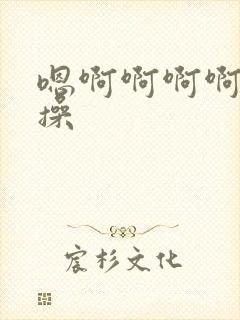 嗯啊啊啊啊
操
宸杉文化